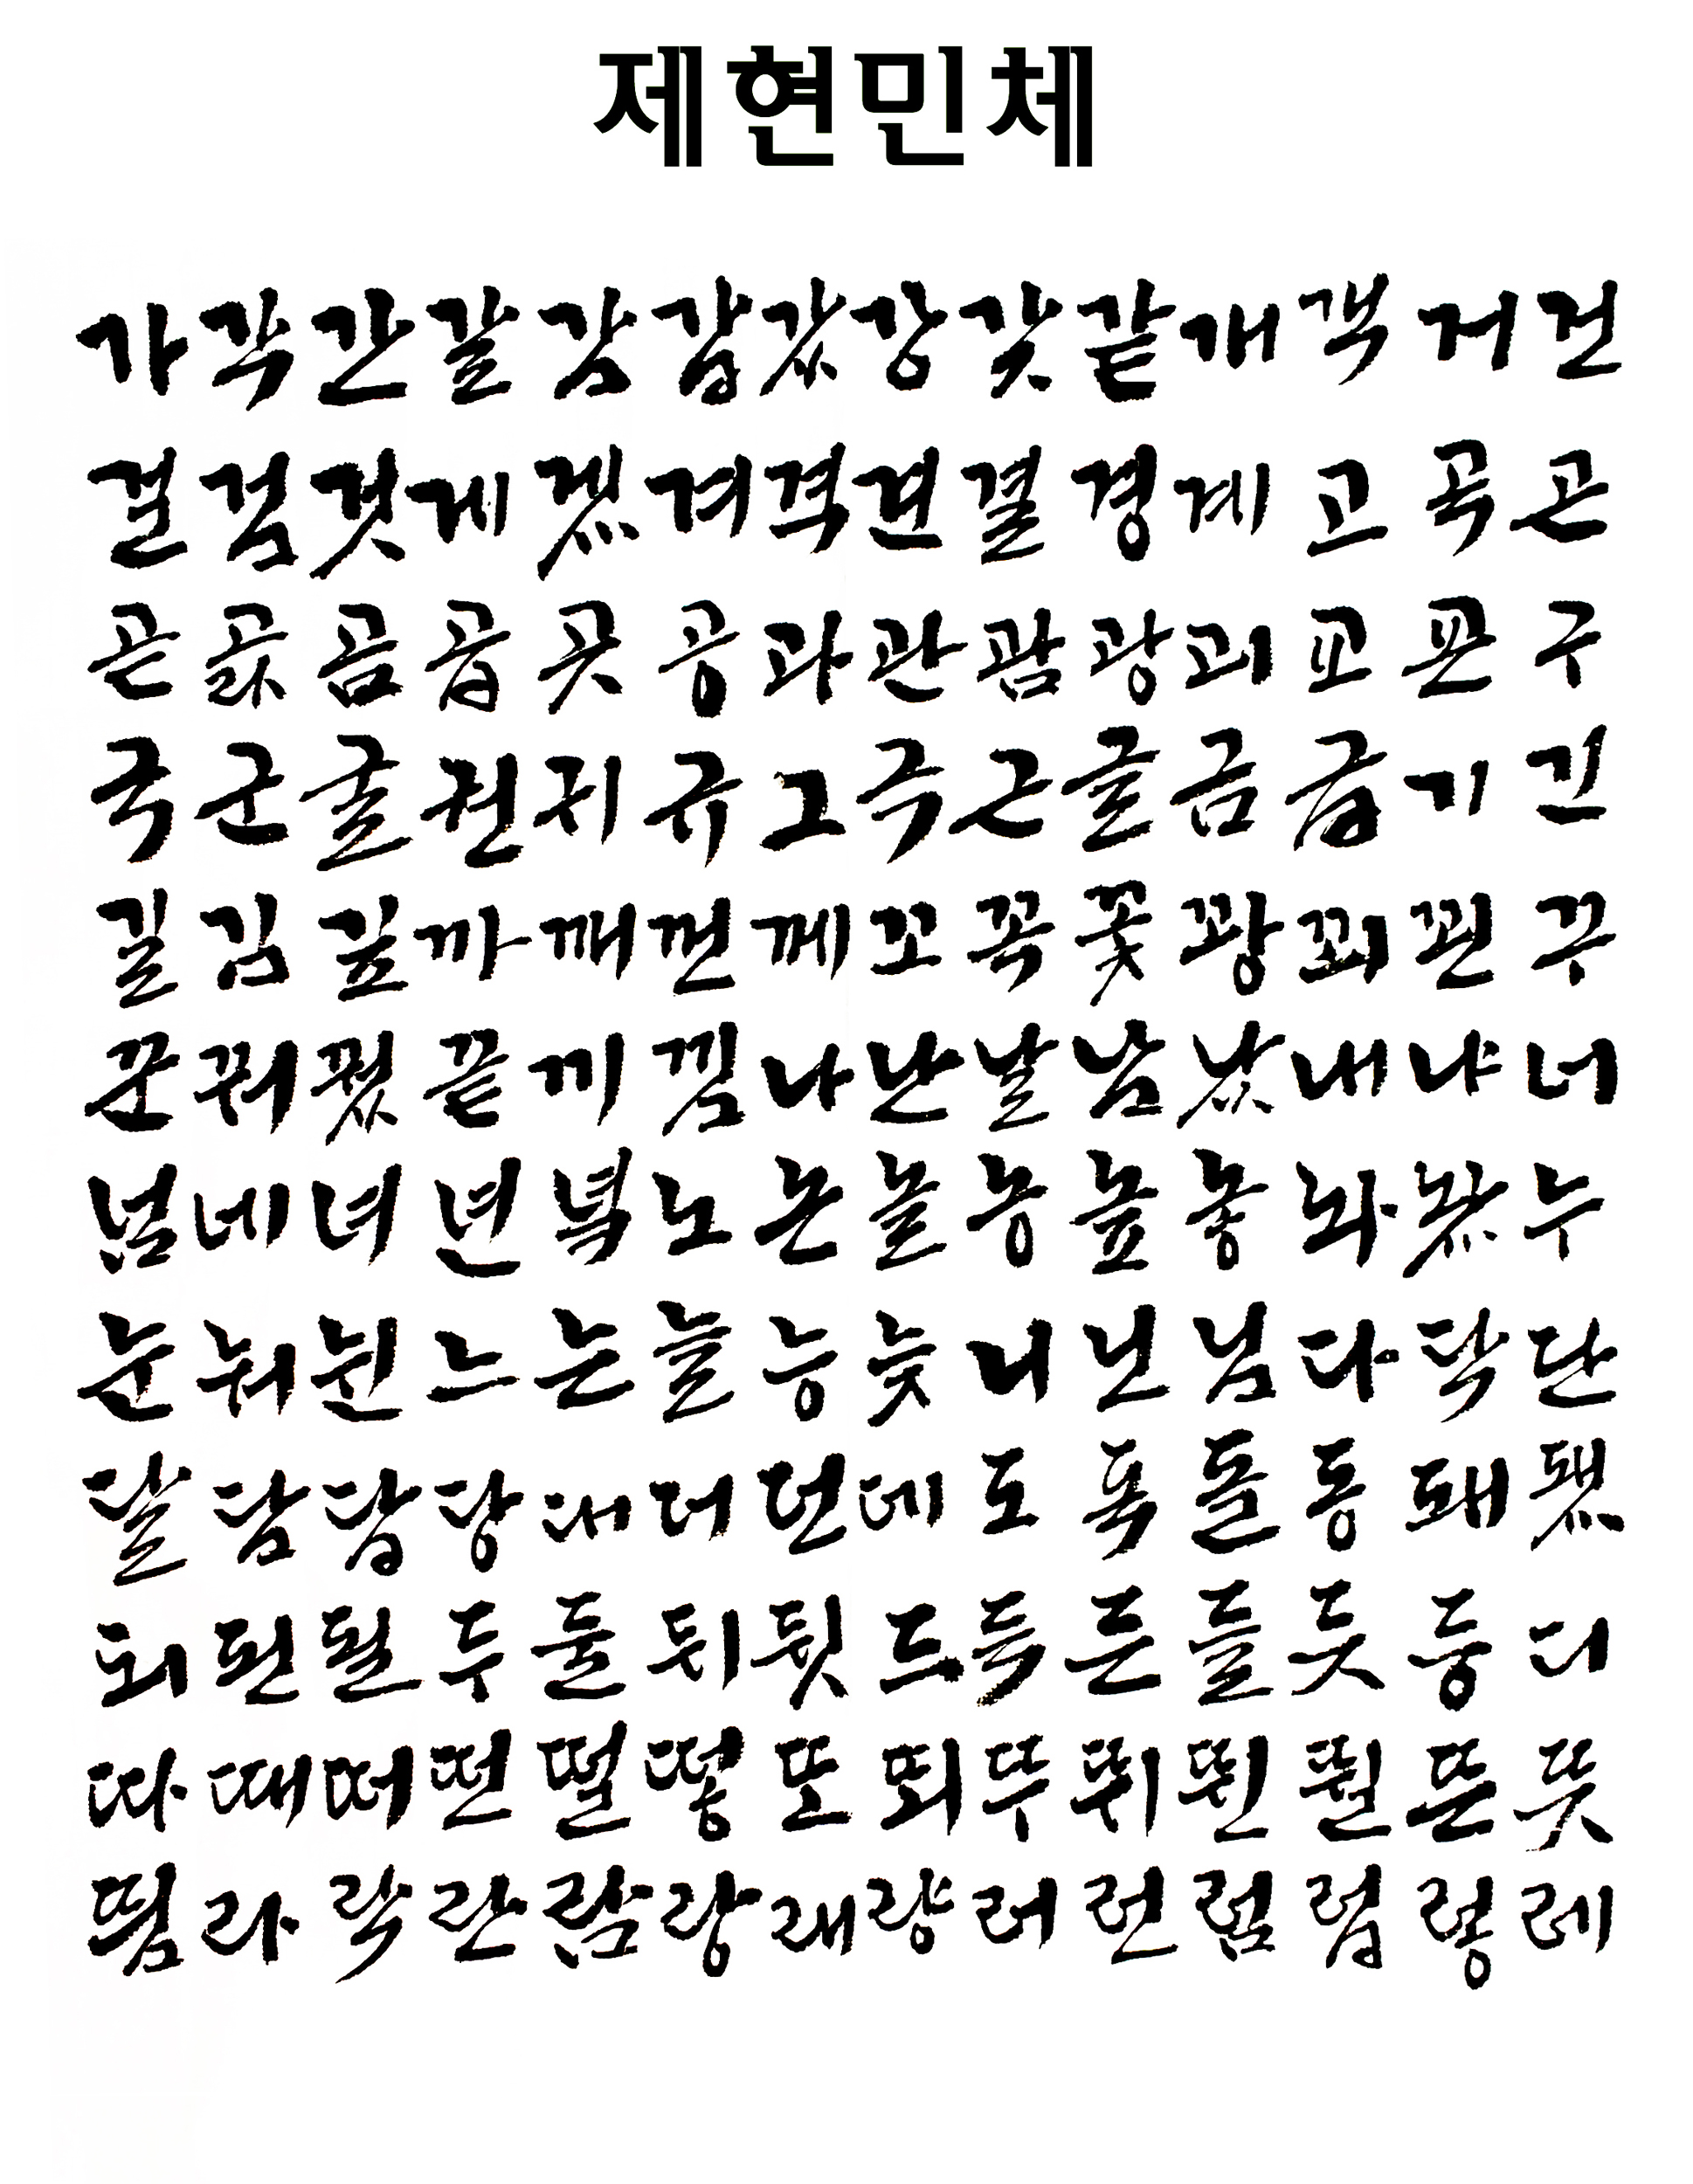 제현민체
가 각 간 갈 감 갑 값 강 갖 같 개 객 거 건
걸 검 것 게 겠 겨 격 견 결 경 계 고 곡 곤
곧 곬 곰 곱 곳 공 과 관 괌 광 괴 교 굔 구
국 군 굴 권 귀 규 그 극 근 글 금 급 기 긴
길 김 깊 까 깨 껀 께 꼬 꼭 꽃 꽝 꾀 꾄 꾸
꾼 꿔 꿨 끝 끼 낌 나 난 날 남 났 내 냐 너
넘 네 녀 년 녘 노 논 놀 농 높 놓 놔 놨 누
눈 눠 뉜 느 는 늘 능 늦 니 닌 님 다 닥 단
달 담 답 당 대 더 던 데 도 독 돌 동 돼 됐
되 된 될 두 둘 뒤 뒷 드 득 든 들 듯 등 디
따 때 떠 떤 떨 떻 또 뙤 뚜 뛰 뛴 뛸 뜬 뜻
띔 라 락 란 람 랑 래 량 러 런 럼 럽 렇 레